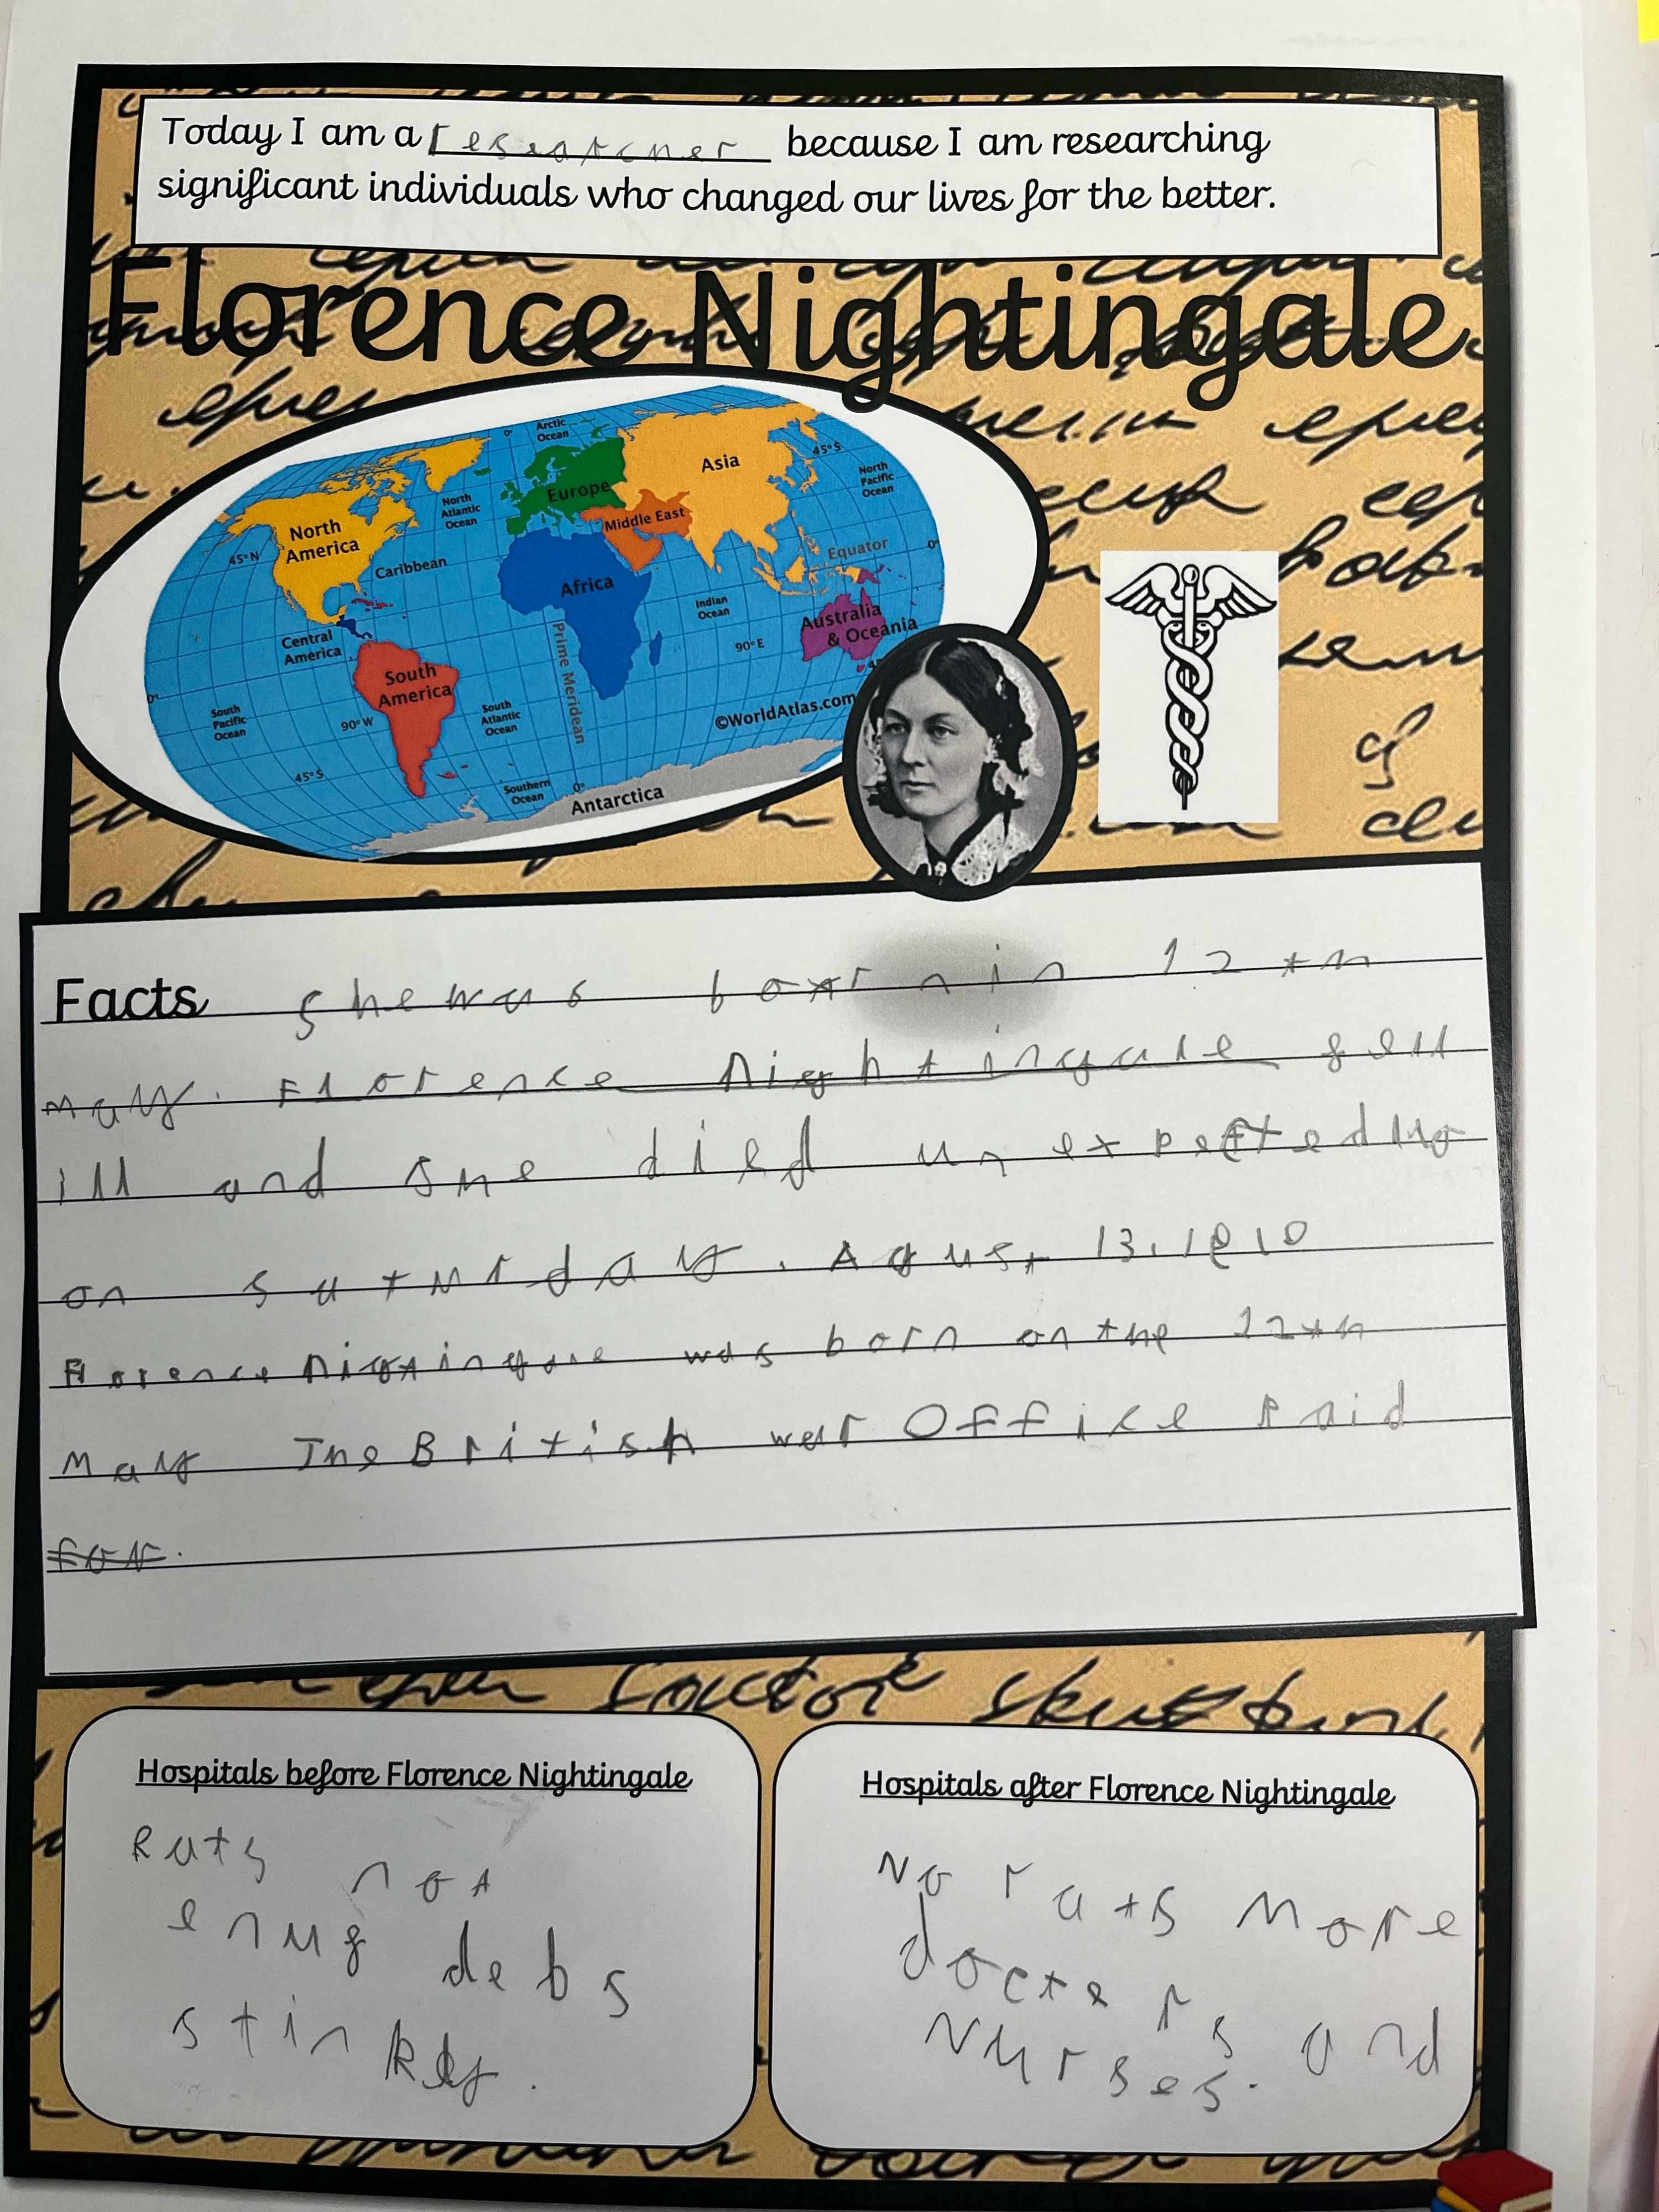 Today I am a researcher because I am researching
significant individuals who changed our lives for the better.
Florence Nightingale
Arctic
Ocean
0°
Asia
45°S
North
Pacific
Ocean
Europe
North
Atlantic
Ocean
Middle East
North
America
45°N
Caribbean
Equator
0°
Africa
Indian
Ocean
Australia
& Oceania
Central
America
90°E
Prime Meridean
South
America
0°
South
Pacific
Ocean
90°W
South
Atlantic
Ocean
©WorldAtlas.com
45°S
Southern
Ocean
0°
Antarctica
Facts she was born in 12 th
may. Florence nightingale fell
ill and she died unexpectedly
on saturday. Agust 13.1910
Florence nigtingale was born on the 12th
May The British war Office Paid
for.
Hospitals before Florence Nightingale
Rats not
enuf debs
stinky.
Hospitals after Florence Nightingale
No rats more
docters and
Nurses.